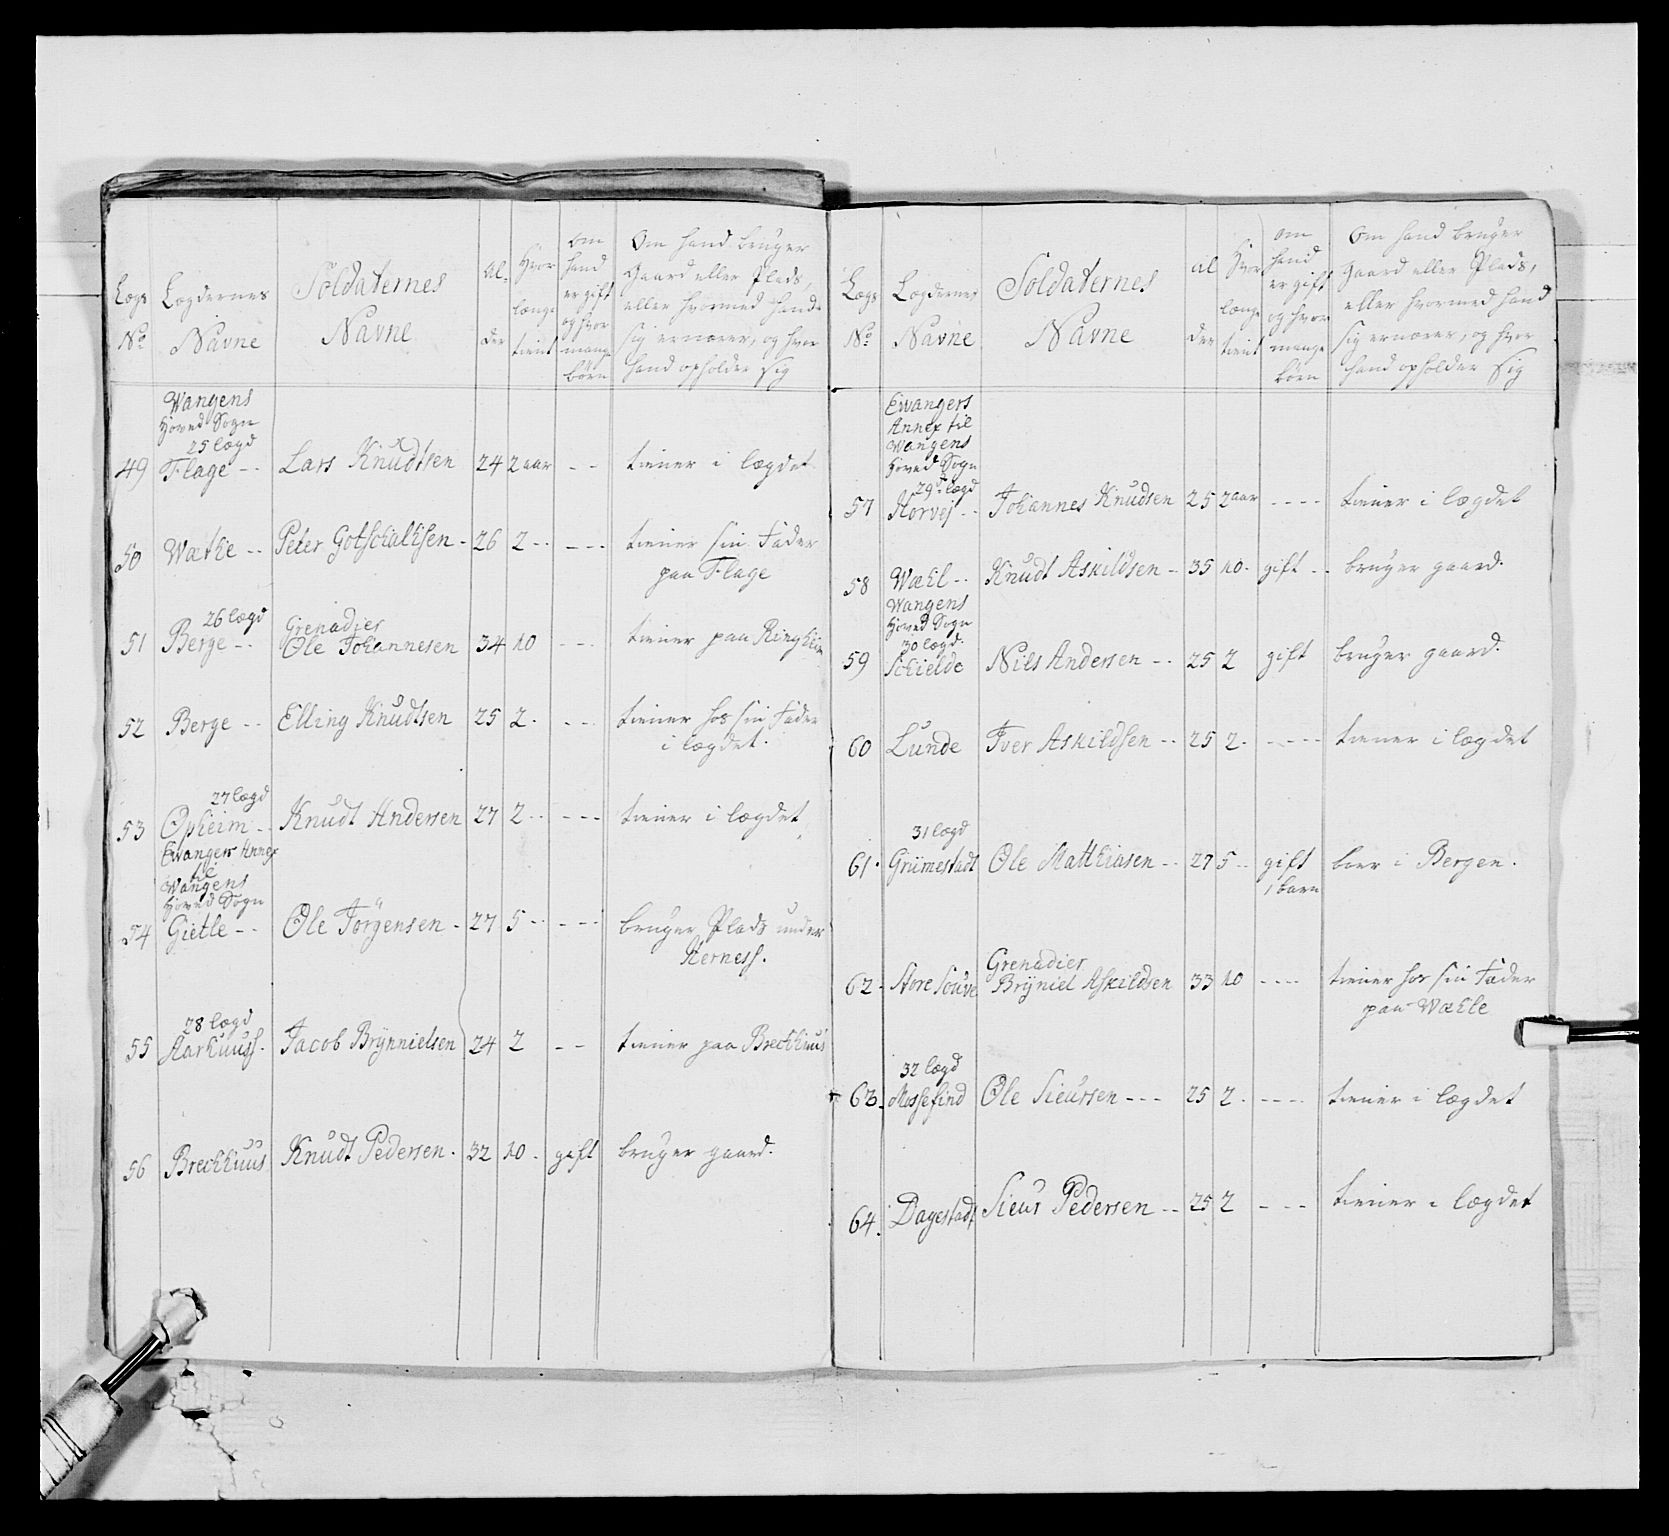 Lægs
No
Lægdernes
Navne
Soldaternes
Navne
Al-
der
Hvor
længe
tient
om
hand
er gift
og hvor
mange
børn
Om hand bruger
Gaard eller Plads,
eller hvormed hand
sig ernærer, og hvor
hand opholder sig
Wangens
Hoved Sogn
25 lægd
49 Flage -- Lars Knudtsen 24 2 aar -- tiener i lægdet
50 Wæthe -- Peter Gotschalksen - 26 2 -- --- tiener sin Fader
paa Flage
26 lægd
Grenadier
51 Berge -- Ole Johannesen 34 10 --- tiener paa Ringheim
52 Berge -- Elling Knudtsen 25 2. --- tiener hos sin Fader
i lægdet.
27 lægd
53 Opheim -- Knudt Andersen 27 2 -- --- tiener i lægdet
Ewangers Annex
Wangens
Hoved Sogn
54 Gietle -- Ole Jørgensen - 27 5 -- --- bruger Plads under
Herness.
28 lægd
55 Aarhuuss. Jacob Brynnielsen 24 2 -- tiener paa Brechhuus
56 Brechhuus Knudt Pedersen. 32 10. gift bruger gaard.
Lægs
No
Lægdernes
Navne
Soldaternes
Navne
al
der
Hvor
længe
tient
om
hand
er gift
og hvor
mange
børn
Om hand bruger
gaard eller Plads,
eller hvormed hand
sig ernærer, og hvor
hand opholder sig
Ewangers
Annex til
Wangens
Hoved Sogn
29de lægd
57 Horvej -- Johannes Knudsen 25 2 aar ---- tiener i lægdet
58 Wæhl -- Knudt Askildsen - 35 10. gift -- bruger gaard.
Wangens
Hoved Sogn
30 lægd.
59 Schielde Nils Andersen -- 25 2 gift bruger gaard.
60 Lunde Iver Askildsen -- 25 2. ---- tiener i lægdet
31 lægd
61. Grimestadt Ole Matthiasen -- 27 5 -- gift boer i Bergen.
1 barn
Grenadier
62. Store Souve Bryniel Askildsen 33 10 ---- tiener hos sin Fader
paa Wæhle
32 lægd
63. Mossefind Ole Sieursen --- 25 2. ---- tiener i lægdet
64. Dagestadt Sieur Pedersen -- 25 2 --- tiener i lægdet